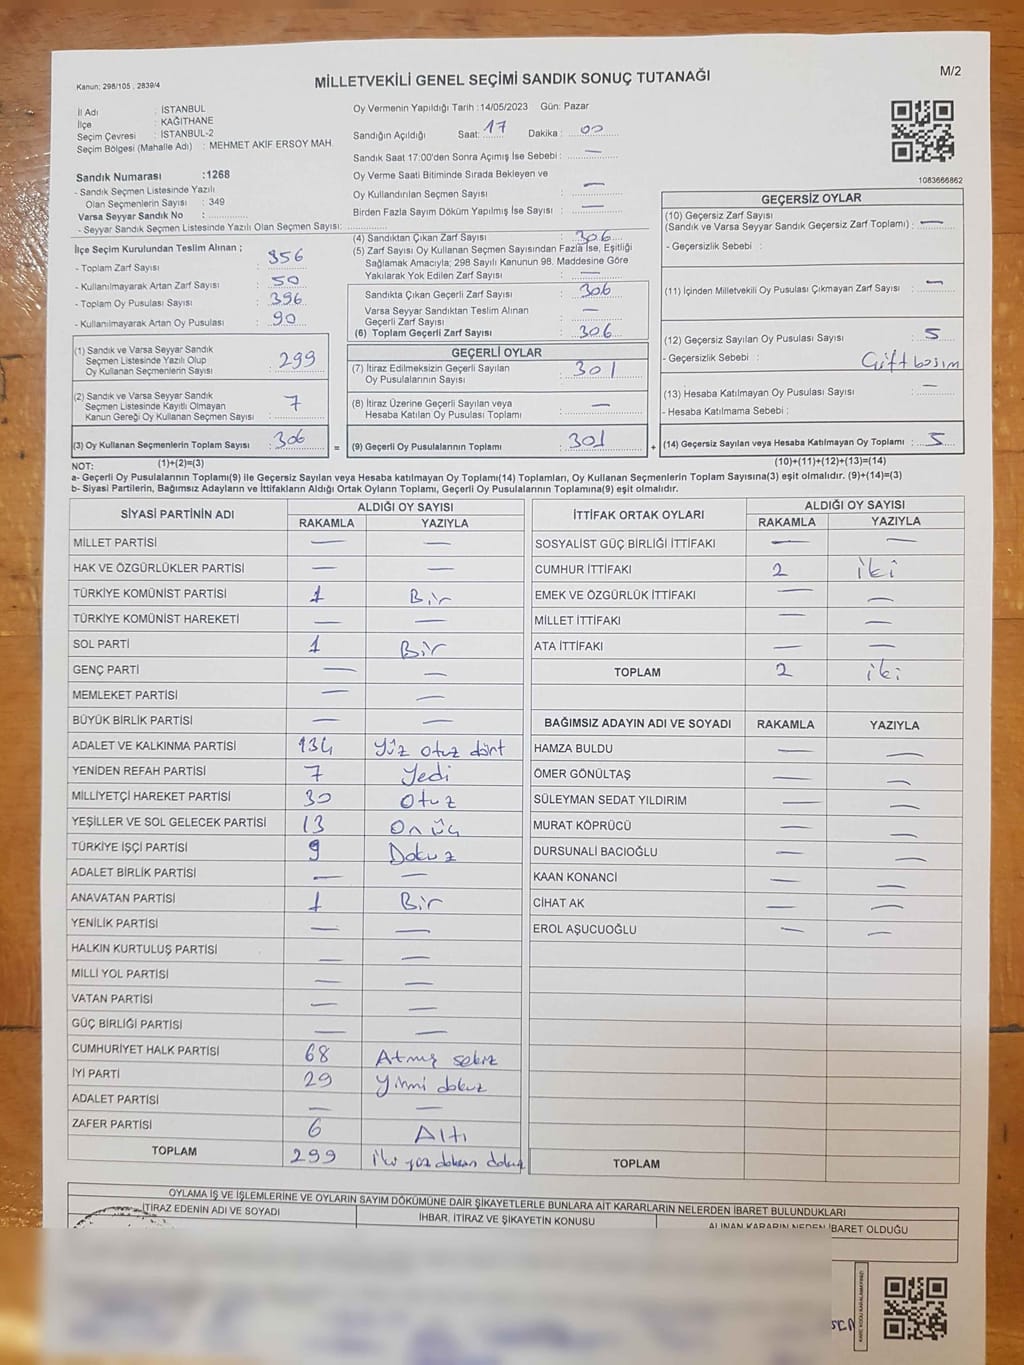 Kanun: 298/105 , 2839/4
MİLLETVEKİLİ GENEL SEÇİMİ SANDIK SONUÇ TUTANAĞI
M/2
İl Adı : İSTANBUL
İlçe : KAĞITHANE
Seçim Çevresi : İSTANBUL-2
Seçim Bölgesi (Mahalle Adı) : MEHMET AKİF ERSOY MAH.
Sandık Numarası :1268
- Sandık Seçmen Listesinde Yazılı
Olan Seçmenlerin Sayısı : 349
Varsa Seyyar Sandık No :
- Seyyar Sandık Seçmen Listesinde Yazılı Olan Seçmen Sayısı:
Oy Vermenin Yapıldığı Tarih :14/05/2023 Gün: Pazar
Sandığın Açıldığı Saat: 17 Dakika : 00
Sandık Saat 17:00'den Sonra Açımış İse Sebebi : —
Oy Verme Saati Bitiminde Sırada Bekleyen ve
Oy Kullandırılan Seçmen Sayısı —
Birden Fazla Sayım Döküm Yapılmış İse Sayısı : —
1083666862
İlçe Seçim Kurulundan Teslim Alınan ;
- Toplam Zarf Sayısı : 356
- Kullanılmayarak Artan Zarf Sayısı : 50
- Toplam Oy Pusulası Sayısı : 396
- Kullanılmayarak Artan Oy Pusulası : 90
(1) Sandık ve Varsa Seyyar Sandık
Seçmen Listesinde Yazılı Olup
Oy Kullanan Seçmenlerin Sayısı : 299
(2) Sandık ve Varsa Seyyar Sandık
Seçmen Listesinde Kayıtlı Olmayan
Kanun Gereği Oy Kullanan Seçmen Sayısı : 7
(3) Oy Kullanan Seçmenlerin Toplam Sayısı : 306
(1)+(2)=(3)
(4) Sandıktan Çıkan Zarf Sayısı : 306
(5) Zarf Sayısı Oy Kullanan Seçmen Sayısından Fazla İse, Eşitliği
Sağlamak Amacıyla; 298 Sayılı Kanunun 98. Maddesine Göre
Yakılarak Yok Edilen Zarf Sayısı : —
Sandıkta Çıkan Geçerli Zarf Sayısı : 306
Varsa Seyyar Sandıktan Teslim Alınan
Geçerli Zarf Sayısı : —
(6) Toplam Geçerli Zarf Sayısı : 306
GEÇERLİ OYLAR
(7) İtiraz Edilmeksizin Geçerli Sayılan
Oy Pusulalarının Sayısı : 301
(8) İtiraz Üzerine Geçerli Sayılan veya
Hesaba Katılan Oy Pusulası Toplamı : —
= (9) Geçerli Oy Pusulalarının Toplamı : 301 +
GEÇERSİZ OYLAR
(10) Geçersiz Zarf Sayısı
(Sandık ve Varsa Seyyar Sandık Geçersiz Zarf Toplamı) : —
- Geçersizlik Sebebi :
(11) İçinden Milletvekili Oy Pusulası Çıkmayan Zarf Sayısı : —
(12) Geçersiz Sayılan Oy Pusulası Sayısı : 5
- Geçersizlik Sebebi : Çift basım
(13) Hesaba Katılmayan Oy Pusulası Sayısı : —
- Hesaba Katılmama Sebebi :
(14) Geçersiz Sayılan veya Hesaba Katılmayan Oy Toplamı : 5
(10)+(11)+(12)+(13)=(14)
NOT:
a- Geçerli Oy Pusulalarının Toplamı(9) ile Geçersiz Sayılan veya Hesaba katılmayan Oy Toplamı(14) Toplamları, Oy Kullanan Seçmenlerin Toplam Sayısına(3) eşit olmalıdır. (9)+(14)=(3)
b- Siyasi Partilerin, Bağımsız Adayların ve İttifakların Aldığı Ortak Oyların Toplamı, Geçerli Oy Pusulalarının Toplamına(9) eşit olmalıdır.
SİYASİ PARTİNİN ADI ALDIĞI OY SAYISI
RAKAMLA YAZIYLA
MİLLET PARTİSİ — —
HAK VE ÖZGÜRLÜKLER PARTİSİ — —
TÜRKİYE KOMÜNİST PARTİSİ 1 Bir
TÜRKİYE KOMÜNİST HAREKETİ — —
SOL PARTİ 1 Bir
GENÇ PARTİ — —
MEMLEKET PARTİSİ — —
BÜYÜK BİRLİK PARTİSİ — —
ADALET VE KALKINMA PARTİSİ 134 Yüz otuz dört
YENİDEN REFAH PARTİSİ 7 Yedi
MİLLİYETÇİ HAREKET PARTİSİ 30 Otuz
YEŞİLLER VE SOL GELECEK PARTİSİ 13 On üç
TÜRKİYE İŞÇİ PARTİSİ 9 Dokuz
ADALET BİRLİK PARTİSİ — —
ANAVATAN PARTİSİ 1 Bir
YENİLİK PARTİSİ — —
HALKIN KURTULUŞ PARTİSİ — —
MİLLİ YOL PARTİSİ — —
VATAN PARTİSİ — —
GÜÇ BİRLİĞİ PARTİSİ — —
CUMHURİYET HALK PARTİSİ 68 Atmış sekiz
İYİ PARTİ 29 Yirmi dokuz
ADALET PARTİSİ — —
ZAFER PARTİSİ 6 Altı
TOPLAM 299 İki yüz doksan dokuz
İTTİFAK ORTAK OYLARI ALDIĞI OY SAYISI
RAKAMLA YAZIYLA
SOSYALİST GÜÇ BİRLİĞİ İTTİFAKI — —
CUMHUR İTTİFAKI 2 iki
EMEK VE ÖZGÜRLÜK İTTİFAKI — —
MİLLET İTTİFAKI — —
ATA İTTİFAKI — —
TOPLAM 2 iki
BAĞIMSIZ ADAYIN ADI VE SOYADI RAKAMLA YAZIYLA
HAMZA BULDU — —
ÖMER GÖNÜLTAŞ — —
SÜLEYMAN SEDAT YILDIRIM — —
MURAT KÖPRÜCÜ — —
DURSUNALİ BACIOĞLU — —
KAAN KONANCİ — —
CİHAT AK — —
EROL AŞUCUOĞLU — —
TOPLAM
OYLAMA İŞ VE İŞLEMLERİNE VE OYLARIN SAYIM DÖKÜMÜNE DAİR ŞİKAYETLERLE BUNLARA AİT KARARLARIN NELERDEN İBARET BULUNDUKLARI
İTİRAZ EDENİN ADI VE SOYADI İHBAR, İTİRAZ VE ŞİKAYETİN KONUSU ALINAN KARARIN NEDEN İBARET OLDUĞU